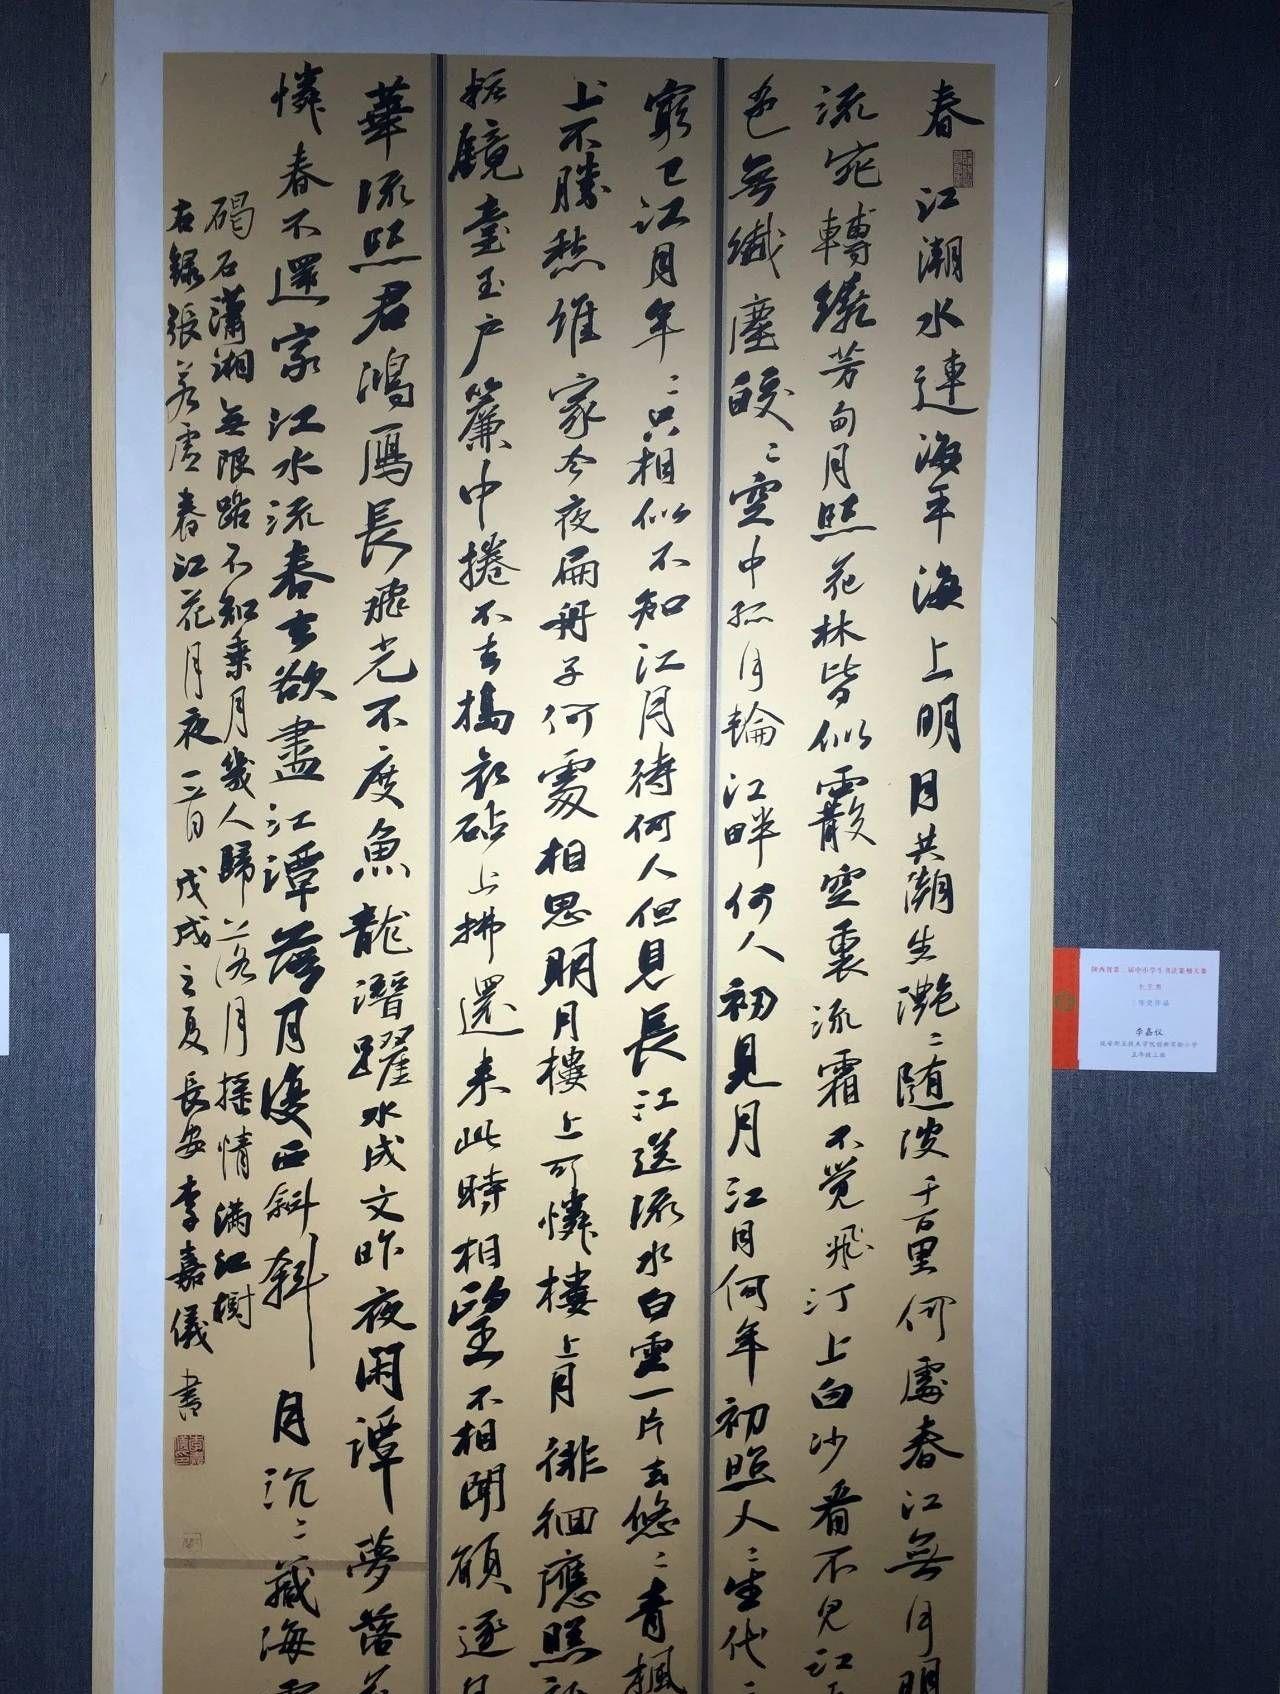 春江潮水連海平海上明月共潮生灔〻随波千百里何處春江無月明
流宛轉繞芳甸月照花林皆似霰空裏流霜不觉飛汀上白沙看不見江
色無纖塵皎〻空中孤月輪江畔何人初見月江月何年初照人〻生代〻
窮已江月年〻只相似不知江月待何人但見長江送流水白雲一片去悠〻青楓
上不勝愁誰家今夜扁舟子何處相思明月樓上可憐樓上月徘徊應照
粧鏡臺玉户簾中捲不去搗衣砧上拂還来此時相望不相聞願逐月
華流照君鴻雁長飛光不度魚龍潛躍水成文昨夜闲潭夢落花
憐春不還家江水流春去欲盡江潭落月復西斜斜月沉〻藏海霧
碣石潇湘無限路不知乘月幾人歸落月摇情满江樹
右録張若虚春江花月夜一首戊戌之夏長安李嘉儀書
陕西省第二届中小学生书法篆刻大赛
等奖作品
李嘉仪
五年级三班